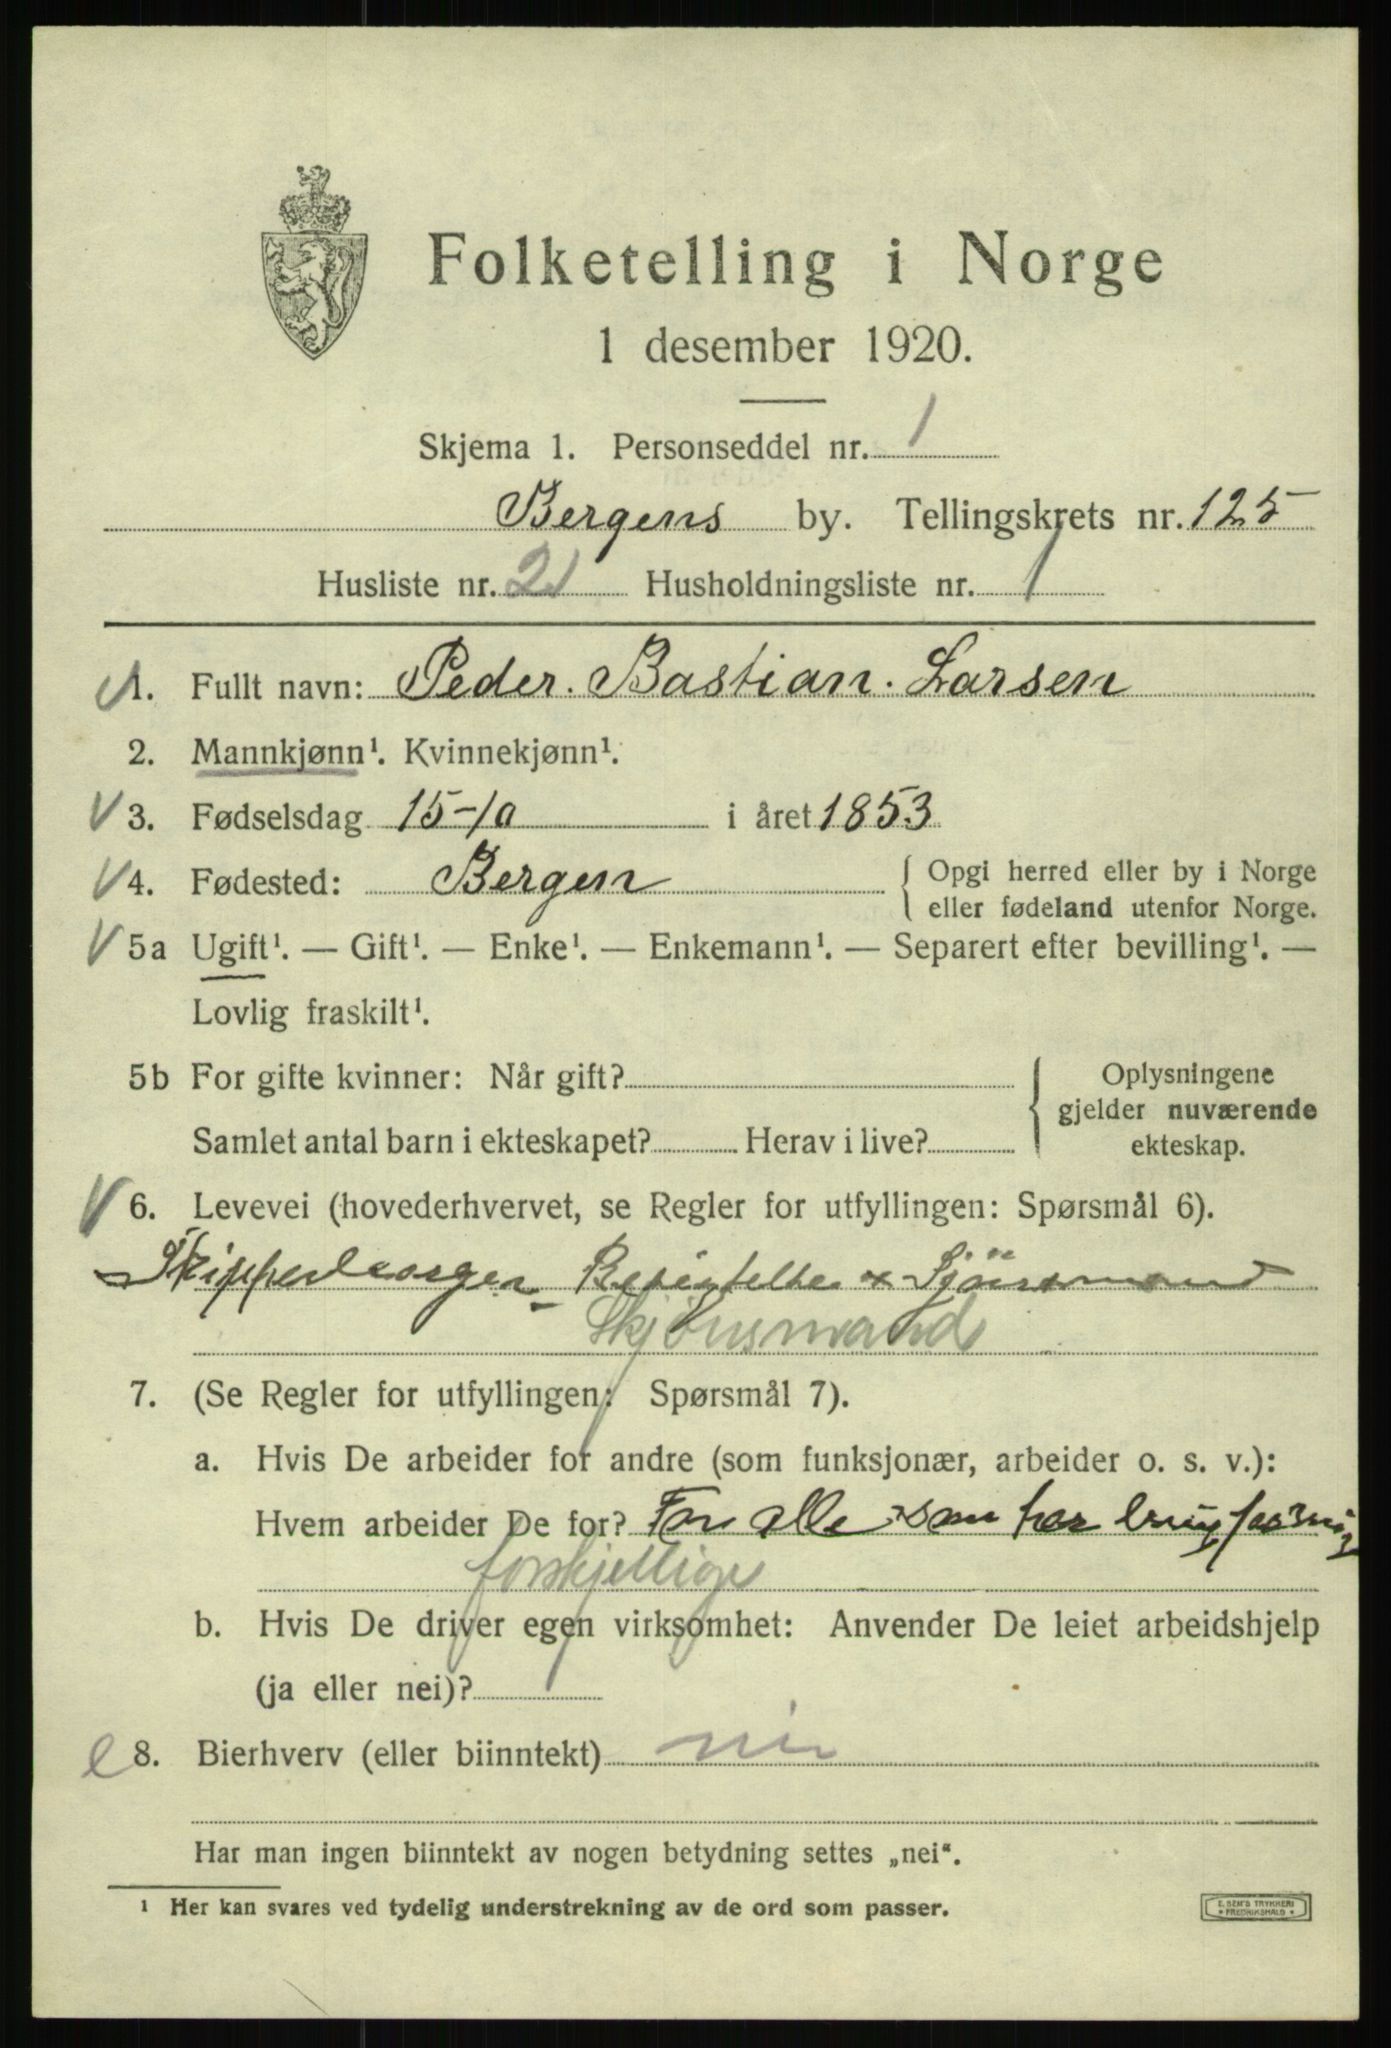 Folketelling i Norge
1 desember 1920.
Skjema 1. Personseddel nr. 1
Bergens by. Tellingskrets nr. 125
Husliste nr. 21 Husholdningsliste nr. 1
1. Fullt navn: Peder. Bastian. Larsen
2. Mannkjønn¹. Kvinnekjønn¹.
3. Fødselsdag 15-10 i året 1853
4. Fødested: Bergen { Opgi herred eller by i Norge
eller fødeland utenfor Norge.
5a Ugift¹. — Gift¹. — Enke¹. — Enkemann¹. — Separert efter bevilling¹. —
Lovlig fraskilt¹.
5b For gifte kvinner: Når gift? { Oplysningene
gjelder nuværende
Samlet antal barn i ekteskapet? Herav i live? ekteskap.
6. Levevei (hovederhvervet, se Regler for utfyllingen: Spørsmål 6).
Skipperborger
Skjønsmand
7. (Se Regler for utfyllingen: Spørsmål 7).
a. Hvis De arbeider for andre (som funksjonær, arbeider o. s. v.):
Hvem arbeider De for? For alle som har brug for mig
forskjellige
b. Hvis De driver egen virksomhet: Anvender De leiet arbeidshjelp
(ja eller nei)?
8. Bierhverv (eller biinntekt) nei
Har man ingen biinntekt av nogen betydning settes „nei“.
¹ Her kan svares ved tydelig understrekning av de ord som passer.
E. SEM'S TRYKKERI
• FREDRIKSHALD •